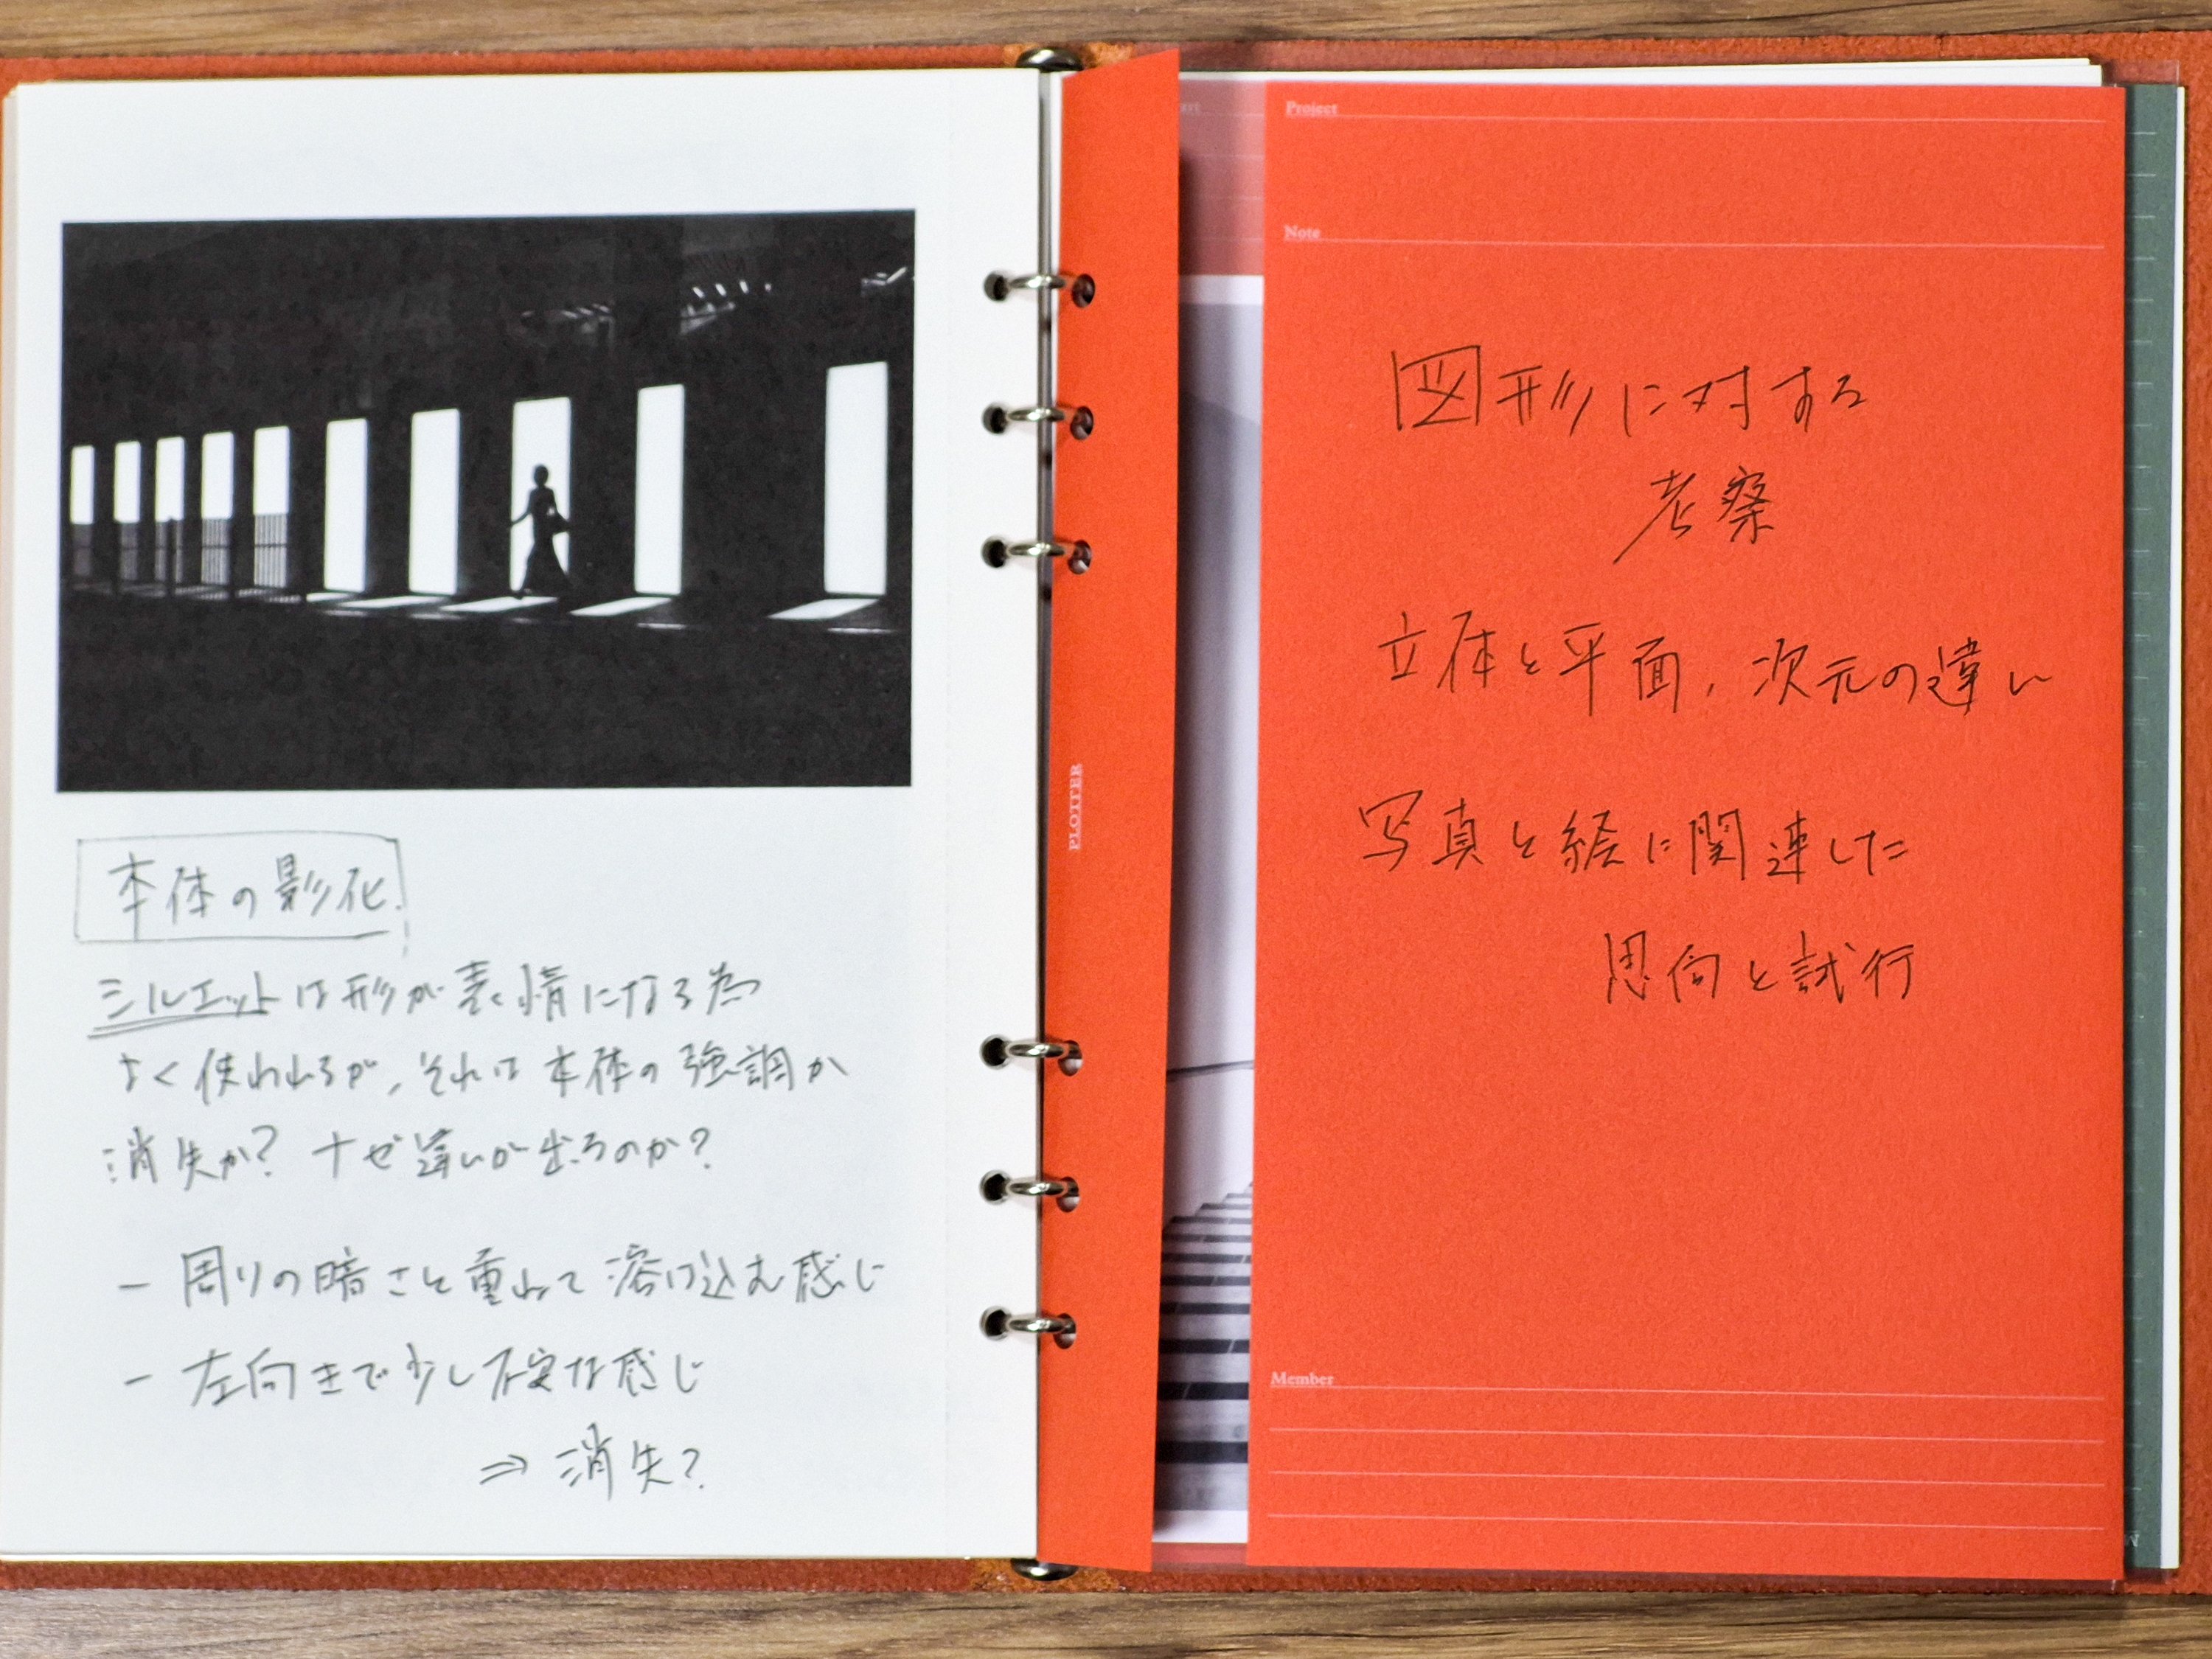 本体の影化.
シルエットは形が表情になる為
よく使われるが、それは本体の強調か
消失か? ナゼ違いが出るのか?
- 周りの暗さと重ねて溶け込む感じ
- 左向きで少し不安な感じ
⇒ 消失?
PLOTTER
Project
Note
図形に対する
考察
立体と平面、次元の違い
写真と絵に関連した
思向と試行
Member